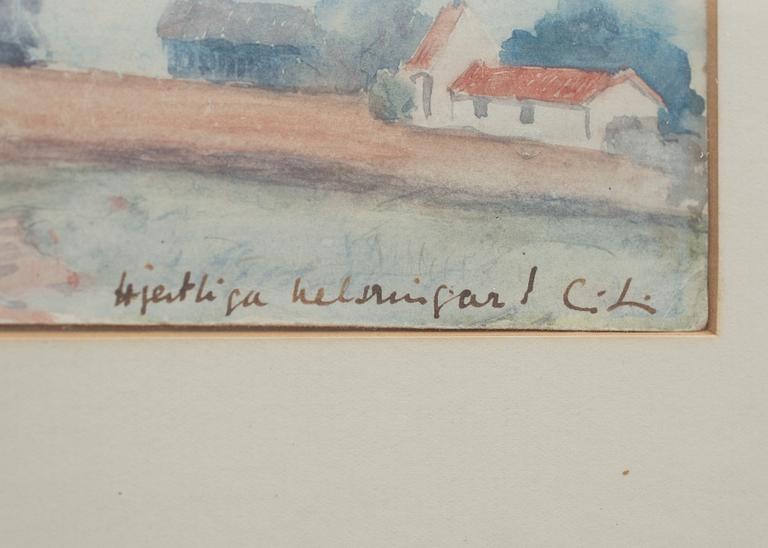 Hjertliga helsningar! C.L.